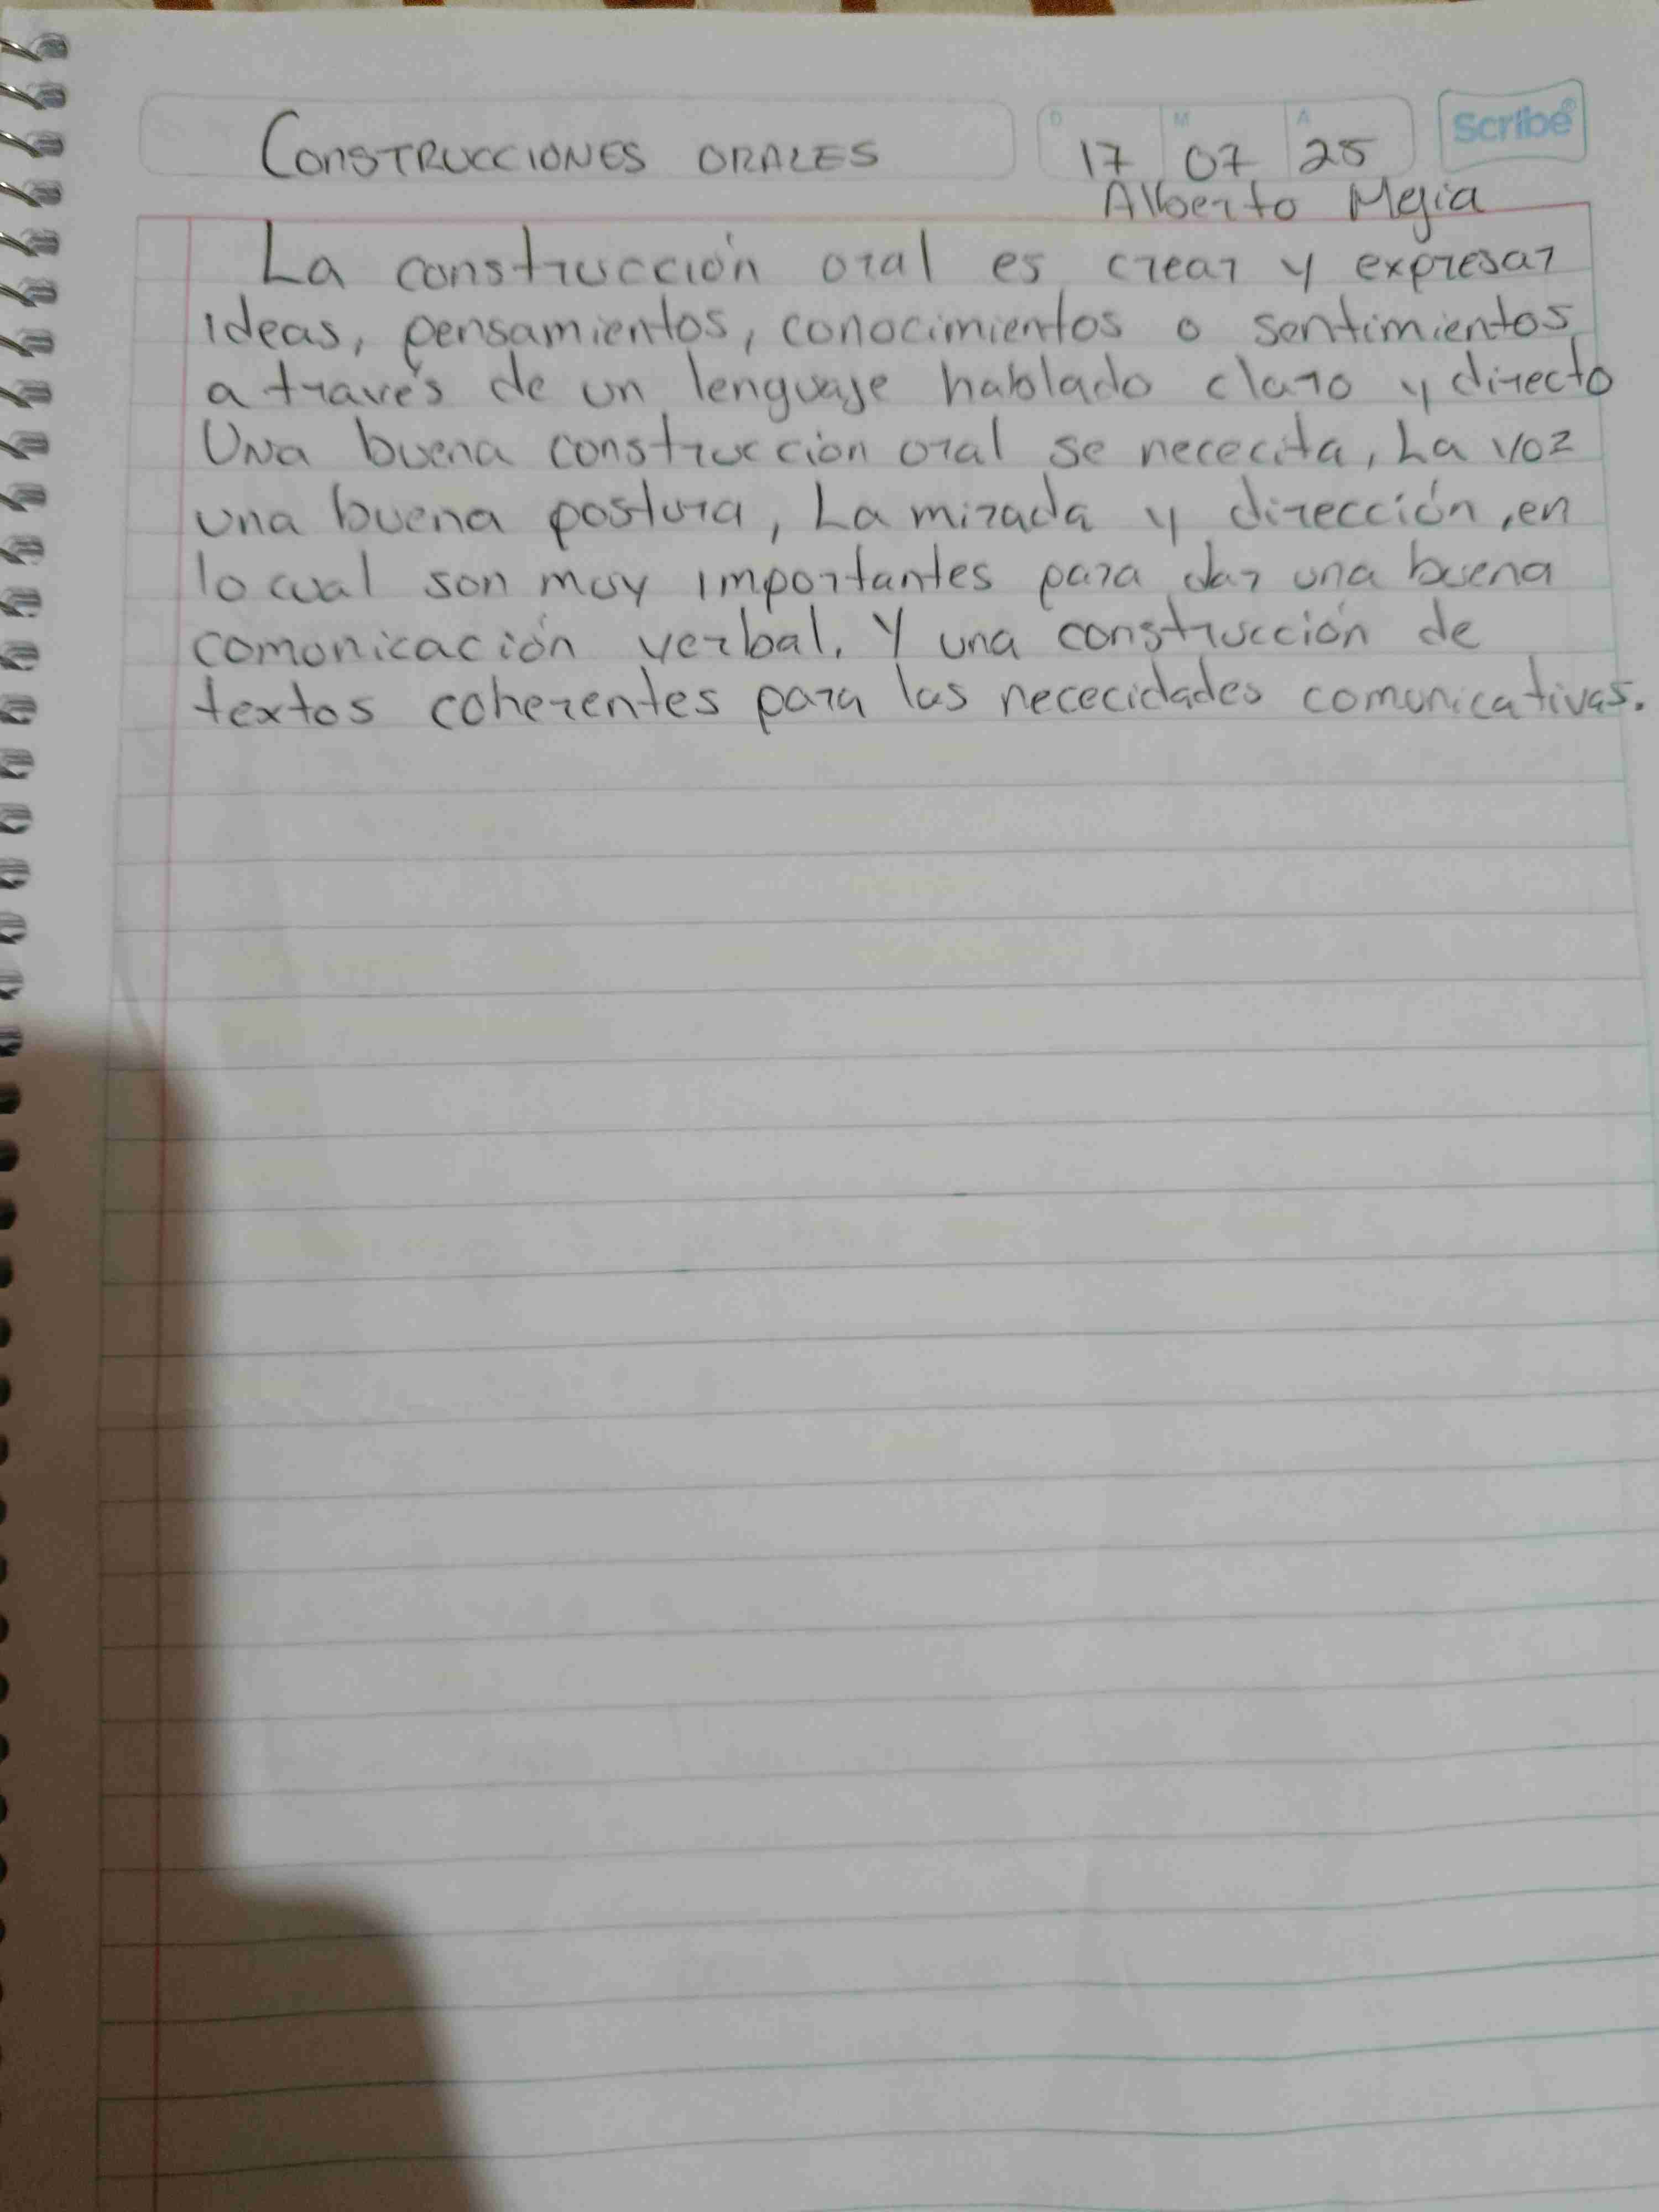 CONSTRUCCIONES ORALES
D M A
17 07 25
Scribe®
Alberto Mejia
La construcción oral es crear y expresar
ideas, pensamientos, conocimientos o sentimientos
a través de un lenguaje hablado claro y directo
Una buena construccion oral se nececita, La voz
una buena postura, La mirada y dirección, en
lo cual son muy importantes para dar una buena
comonicación verbal. Y una construcción de
textos coherentes para las nececidades comunicativas.